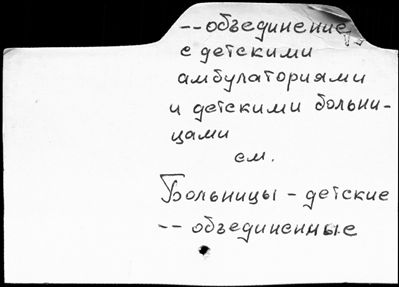 --объединение
с детскими
амбулаториями
и детскими больни-
цами
см.
Больницы - детские
-- объединенные